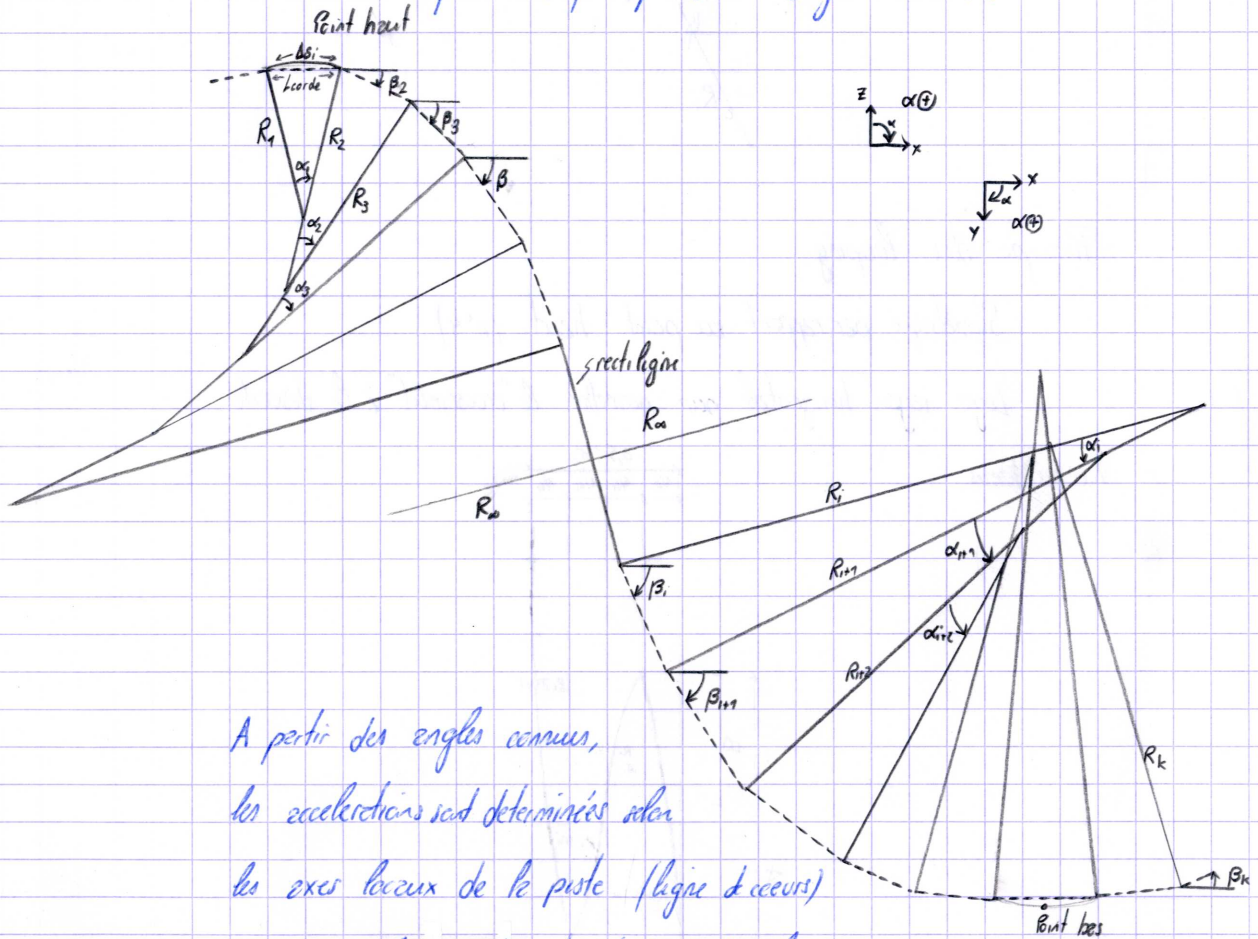 Point haut
Δsi
Lcorde
β2
β3
β
R1
R2
R3
α1
α2
α3
z
α⊕
α
x
x
α
y
α⊕
rectiligne
R∞
R∞
Ri
αi
Ri+1
αi+1
Ri+2
αi+2
βi
βi+1
Rk
βk
Point bas
A partir des angles connus,
les accelerations sont determinées selon
les axes locaux de la piste (ligne de coeurs)